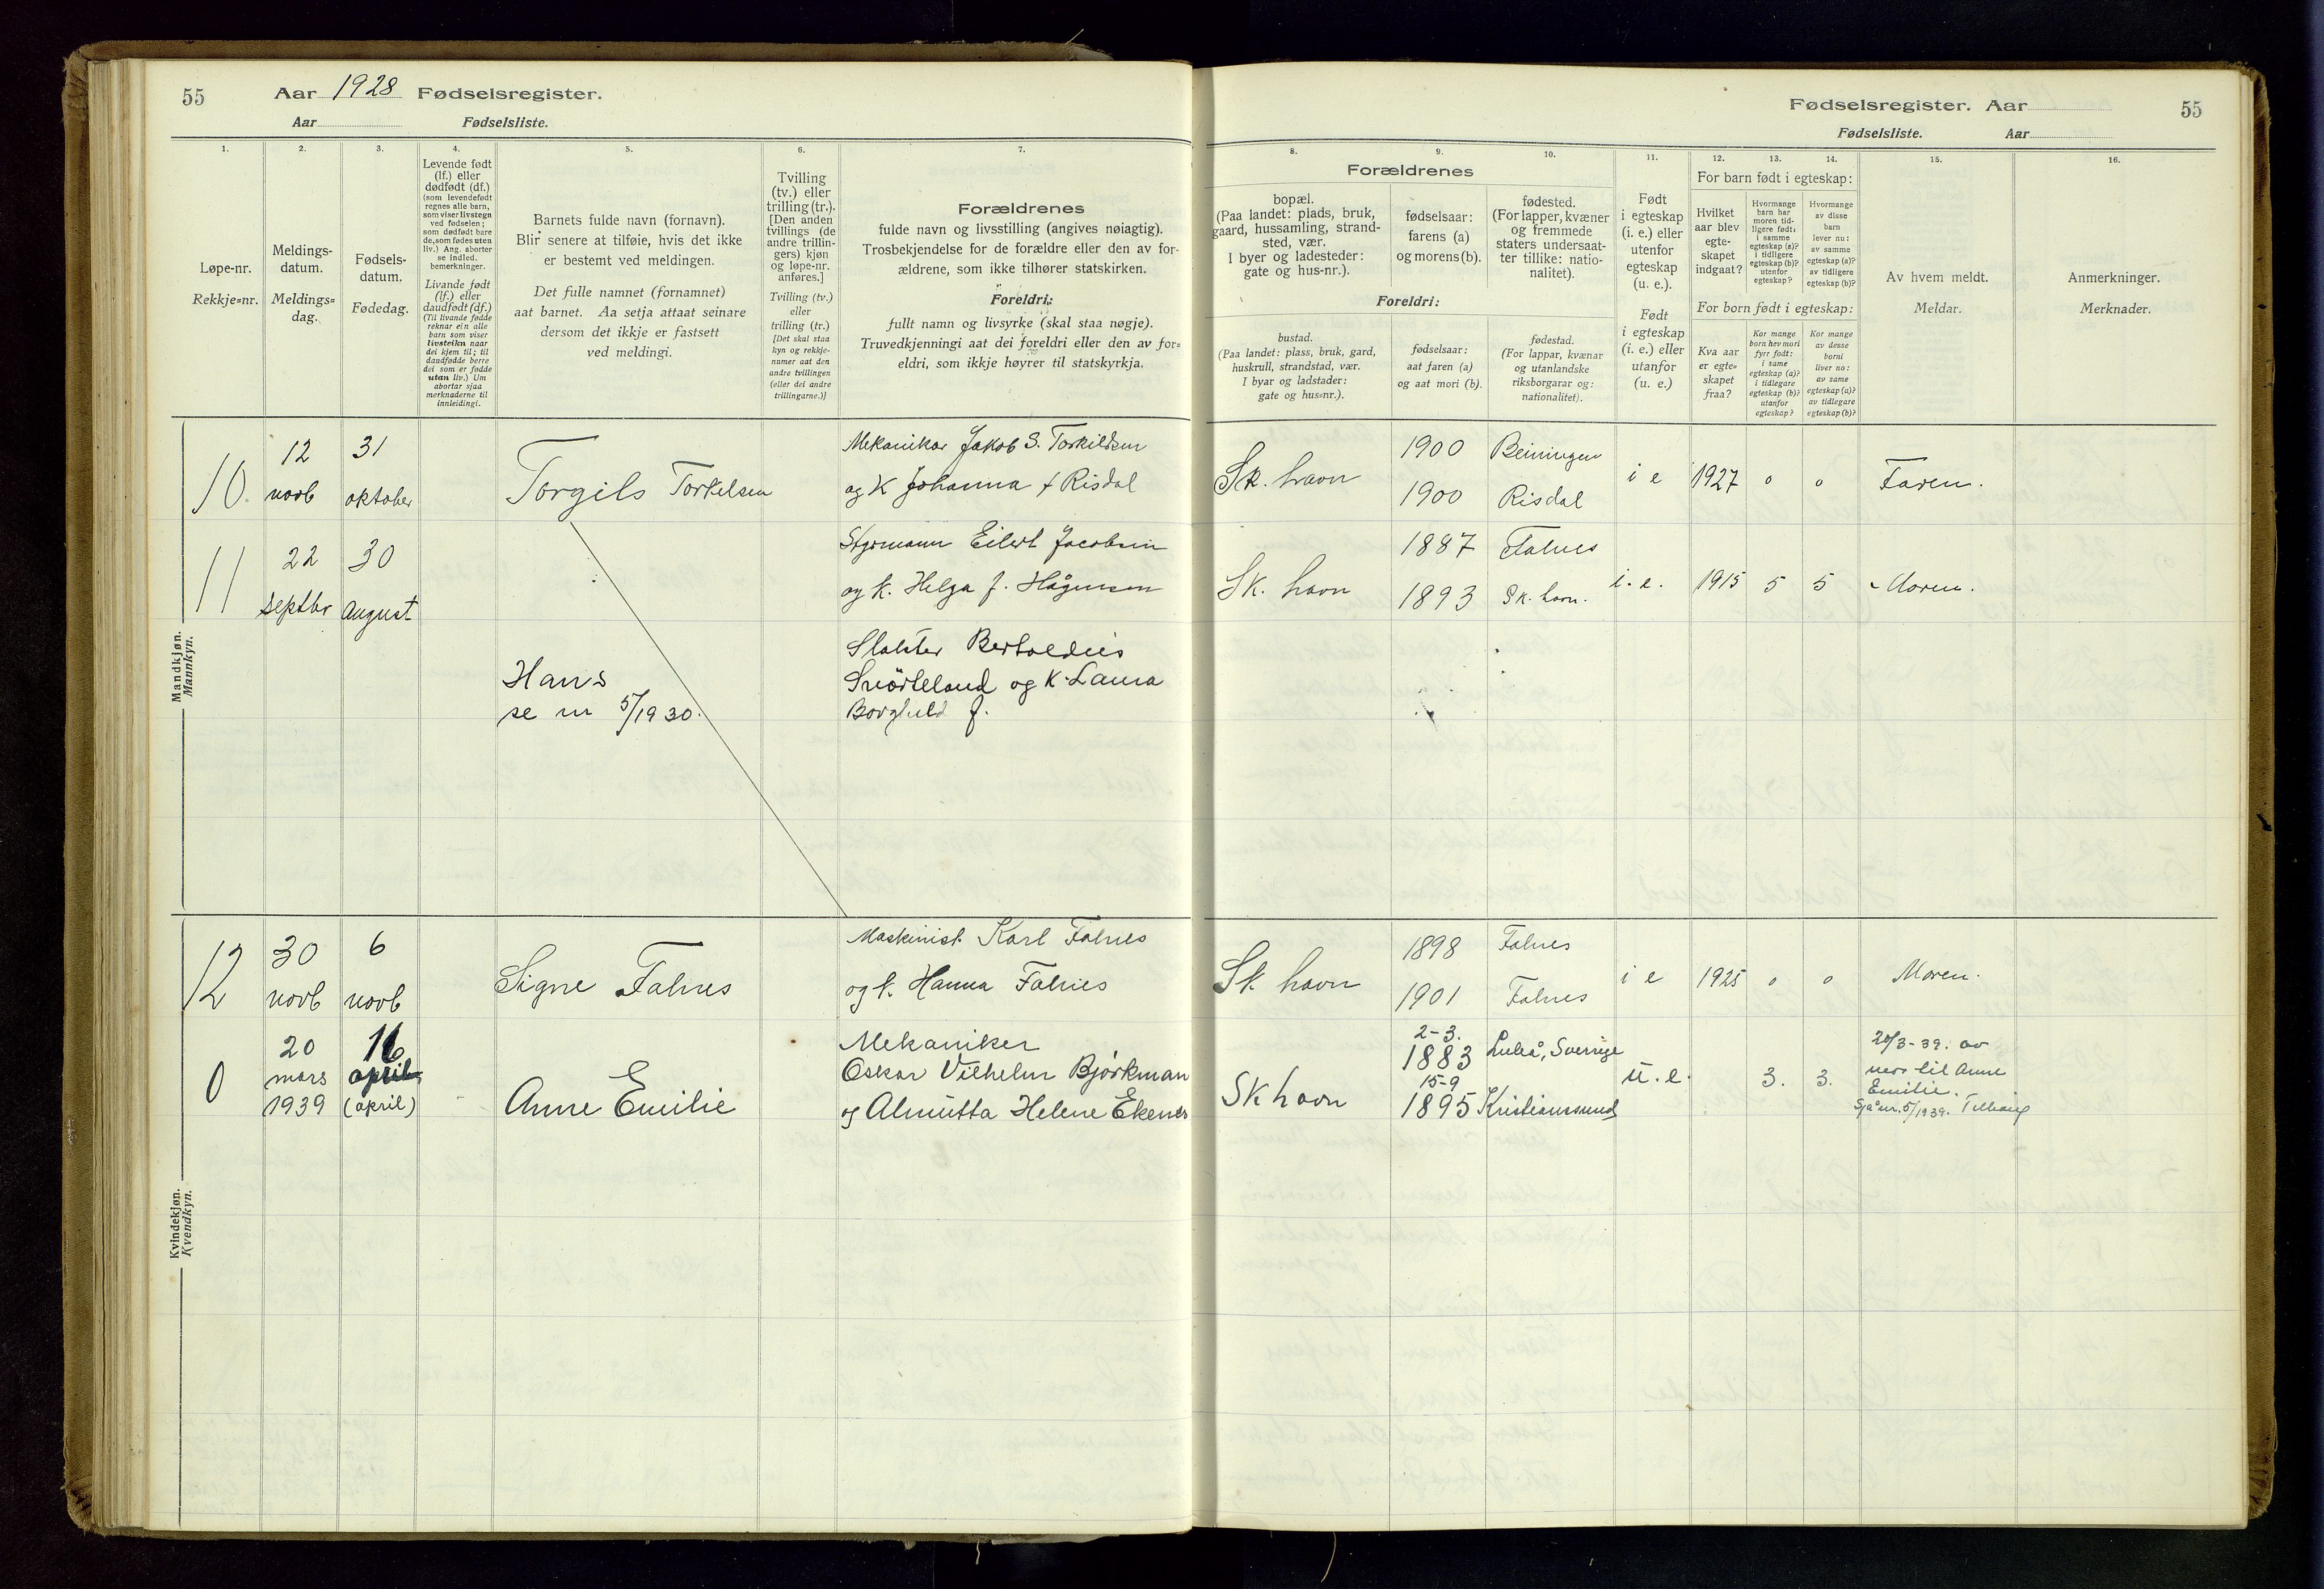 55
Aar 1928 Fødselsregister.
Aar Fødselsliste.
1.
2.
3.
4.
5.
6.
7.
Løpe-nr.
Rekkje=nr.
Meldings-
datum.
Meldings=
dag.
Fødsels-
datum.
Fødedag.
Levende født
(lf.) eller
dødfødt (df.)
(som levendefødt
regnes alle barn,
som viser livstegn
ved fødselen;
som dødfødt bare
de, som fødes uten
liv.) Ang. aborter
se indled.
bemerkninger.
Livande født
(lf.) eller
daudfødt (df.)
(Til livande fødde
reknar ein alle
barn som viser
livsteikn naar
dei kjem til; til
daudfødde berre
dei som er fødde
utan liv.) Um
abortar sjaa
merknaderne til
innleidingi.
Barnets fulde navn (fornavn).
Blir senere at tilføie, hvis det ikke
er bestemt ved meldingen.
Det fulle namnet (fornamnet)
aat barnet. Aa setja attaat seinare
dersom det ikkje er fastsett
ved meldingi.
Tvilling
(tv.) eller
trilling (tr.).
[Den anden
tvillings (de
andre trillin-
gers) kjøn
og løpe-nr.
anføres.]
Tvilling (tv.)
eller
trilling (tr.)
[Det skal staa
kyn og rekkje-
numer aat den
andre tvillingen
(eller dei andre
trillingarne.)]
Forældrenes
fulde navn og livsstilling (angives nøiagtig).
Trosbekjendelse for de forældre eller den av for-
ældrene, som ikke tilhører statskirken.
Foreldri:
fullt namn og livsyrke (skal staa nøgje).
Truvedkjenningi aat dei foreldri eller den av for=
eldri, som ikkje høyrer til statskyrkja.
Mandkjøn.
Mannkyn.
10.
12
novb
31
oktober
Torgils Torkelsen
Mekaniker Jakob S. Torkildsen
og K Johanna f Risdal
11
22
septbr
30
August
Styrmann Eilert Jacobsen
og k. Helga f. Hågensen
Hans
se nr 5/1930.
Slakter Bertoldius
og K. Laura
Borghild f.
Kvindekjøn.
Kvendkyn.
12
30
novb
6
novb
Signe Falnes
Maskinist Karl Falnes
og k. Hanna Falnes
0
20
mars
1939
16
april
(april)
Anne Emilie
Mekaniker
Oskar Vilhelm Bjørkman
og Almutta Helene Ekenes
Fødselsregister. Aar
55
Fødselsliste. Aar
8.
9.
10.
11.
12.
13.
14.
15.
16.
Forældrenes
bopæl.
(Paa landet: plads, bruk,
gaard, hussamling, strand-
sted, vær.
I byer og ladesteder:
gate og hus-nr.).
fødselsaar:
farens (a)
og morens (b).
fødested.
(For lapper, kvæner
og fremmede
staters undersaat-
ter tillike: natio-
nalitet).
Foreldri:
bustad.
(Paa landet: plass, bruk, gard,
huskrull, strandstad, vær.
I byar og ladstader:
gate og hus=nr.).
fødselsaar:
aat faren (a)
og aat mori (b).
fødestad.
(For lappar, kvænar
og utanlandske
riksborgarar og:
nationalitet).
Født
i egteskap
(i. e.) eller
utenfor
egteskap
(u. e.).
Født
i egteskap
(i. e.) eller
utanfor
(u. e.)
For barn født i egteskap:
Hvilket
aar blev
egte-
skapet
indgaat?
Hvormange
barn har
moren tid-
ligere født:
i samme
egteskap (a)?
i tidligere
egteskap (b)?
utenfor
egteskap?
Hvormange
av disse
barn
lever nu:
av samme
egteskap (a)?
av tidligere
egteskap (b)?
For born født i egteskap:
Kva aar
er egte=
skapet
fraa?
Kor mange
born hev mori
fyrr født:
i same
egteskap (a)?
i tidlegare
egteskap (b)?
utanfor
egteskap?
Kor mange
av desse
borni
liver no:
av same
egteskap (a)?
av tidlegare
egteskap (b)?
Av hvem meldt.
Meldar.
Anmerkninger.
Merknader.
Sk. havn
1900
1900
Beiningen
Risdal
i e
1927
0
0
Faren.
Sk. havn
1887
1893
Falnes
Sk. havn.
i. e.
1915
5
5
Moren.
Sk. havn
1898
1901
Falnes
Falnes
i e
1925
0
0
Moren.
Sk havn
2-3.
1883
15-9
1895
Luleå, Sverige
Kristiansund
u. e.
3.
3.
20/3-39. av
mor til Anne
Emilie.
Sjå nr. 5/1939. Tillegg